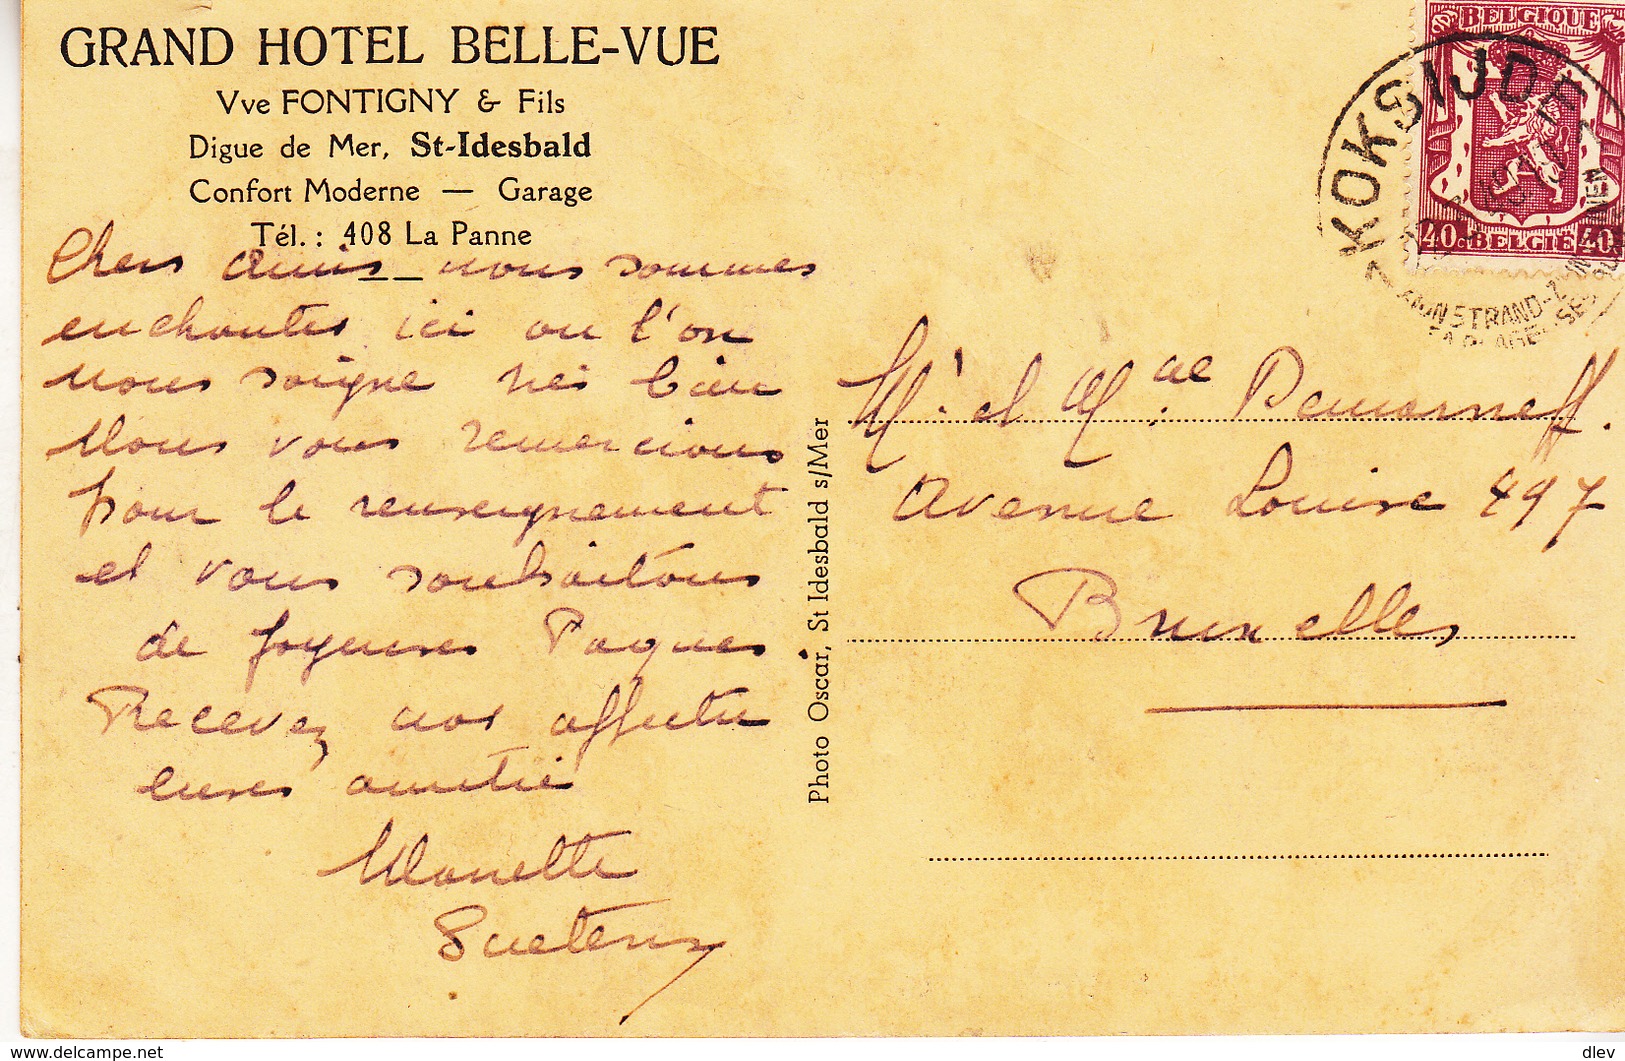 GRAND HOTEL BELLE-VUE
Vve FONTIGNY & Fils
Digue de Mer, St-Idesbald
Confort Moderne — Garage
Tél. : 408 La Panne
Chers amis _ nous sommes
enchantés ici ou l'on
nous soigne très bien
Nous vous remercions
pour le renseignement
et vous souhaitons
de joyeuses Paques
Recevez nos affectu
euses amitié
Monette
Photo Oscar, St Idesbald s/Mer
BELGIQUE
40c BELGIË 40c
KOKSIJDE
Mr et Mme Demorneff.
Avenue Louise 497
Bruxelles
delcampe.net
dlev